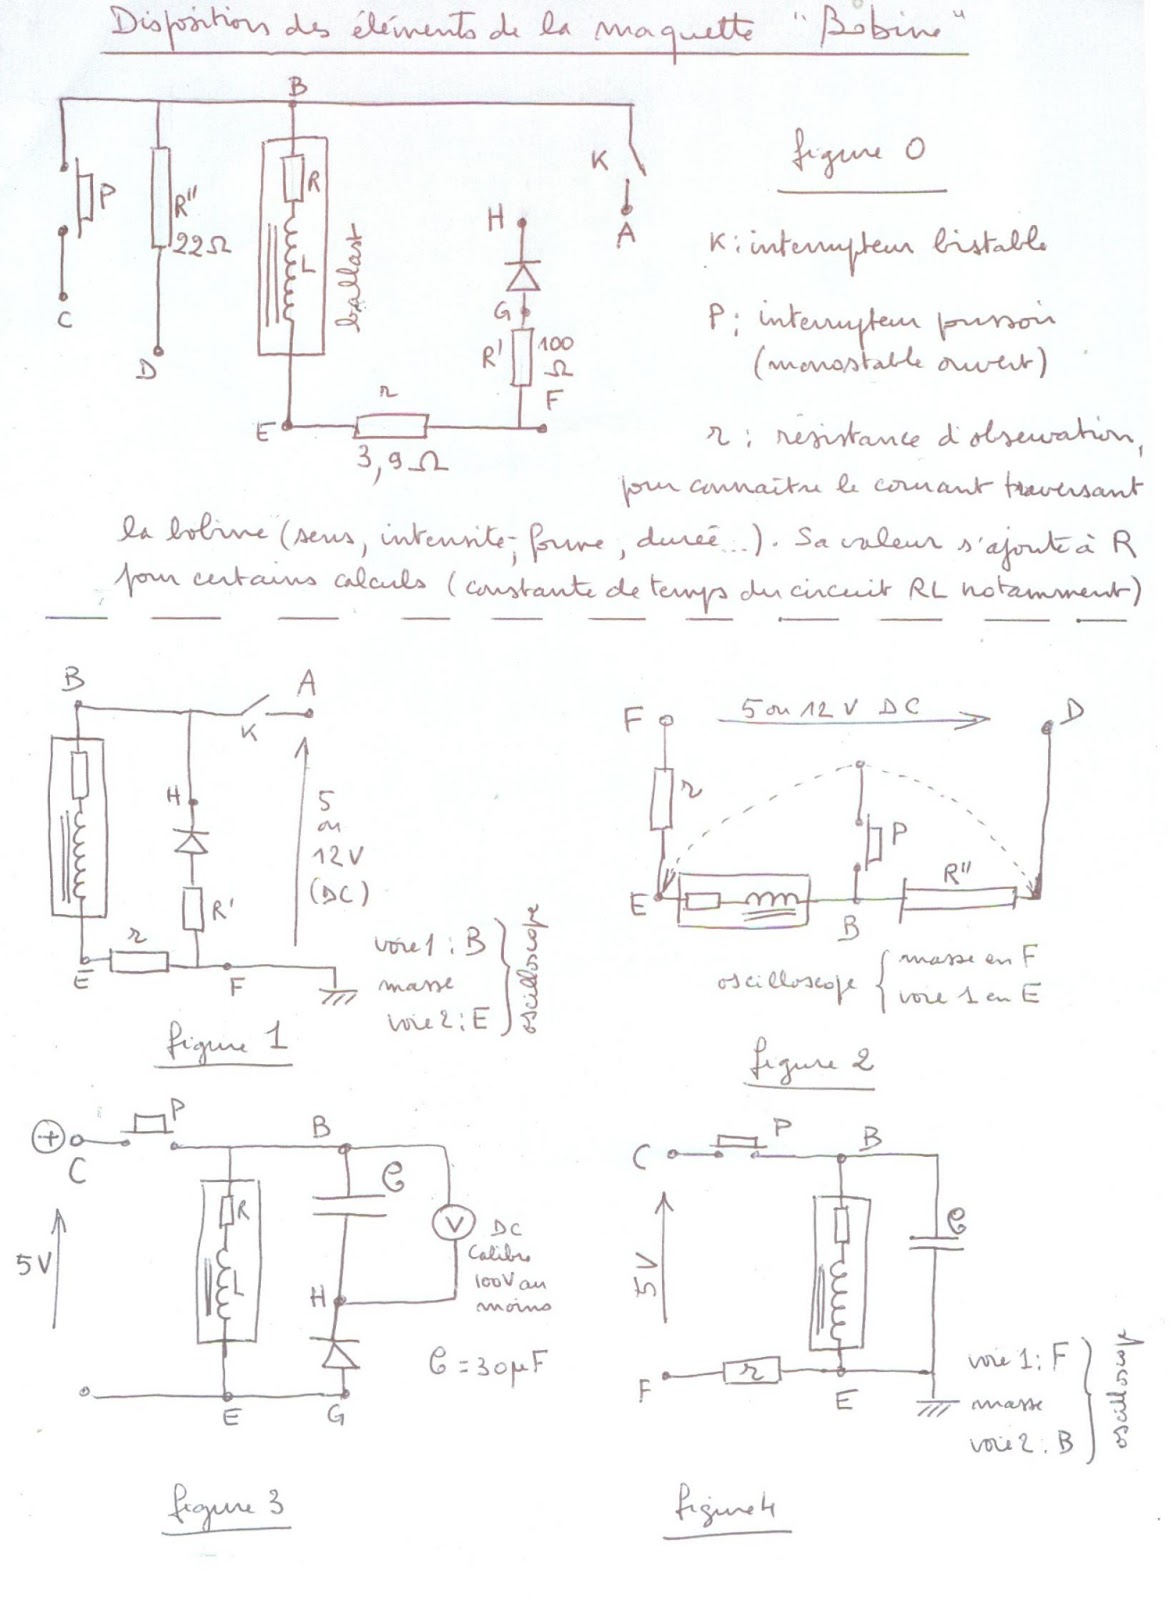 Disposition des éléments de la maquette "Bobine"
B
figure 0
K
P
R"
22Ω
R
L
ballast
H
A
G
R'
100
Ω
F
C
D
E
r
3,9Ω
K : interrupteur bistable
P : interrupteur poussoir
(monostable ouvert)
r : résistance d'observation,
pour connaître le courant traversant
la bobine (sens, intensité, forme, durée...). Sa valeur s'ajoute à R
pour certains calculs (constante de temps du circuit RL notamment)
B
A
K
H
R'
5
ou
12V
(DC)
E
r
F
voie 1 : B
masse
voie 2 : E
oscilloscope
figure 1
F
5 ou 12 V DC
D
r
P
E
B
R"
oscilloscope
masse en F
voie 1 en E
figure 2
+
C
P
B
C
R
L
5V
V
DC
Calibre
100V au
moins
H
C = 30µF
E
G
figure 3
C
P
B
C
5V
F
r
E
voie 1 : F
masse
voie 2 : B
oscilloscope
figure 4